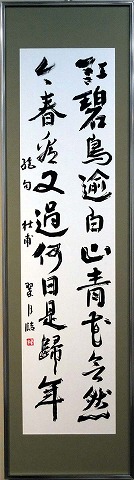 江碧鳥逾白山青花欲然
今春看又過何日是歸年
絶句 杜甫